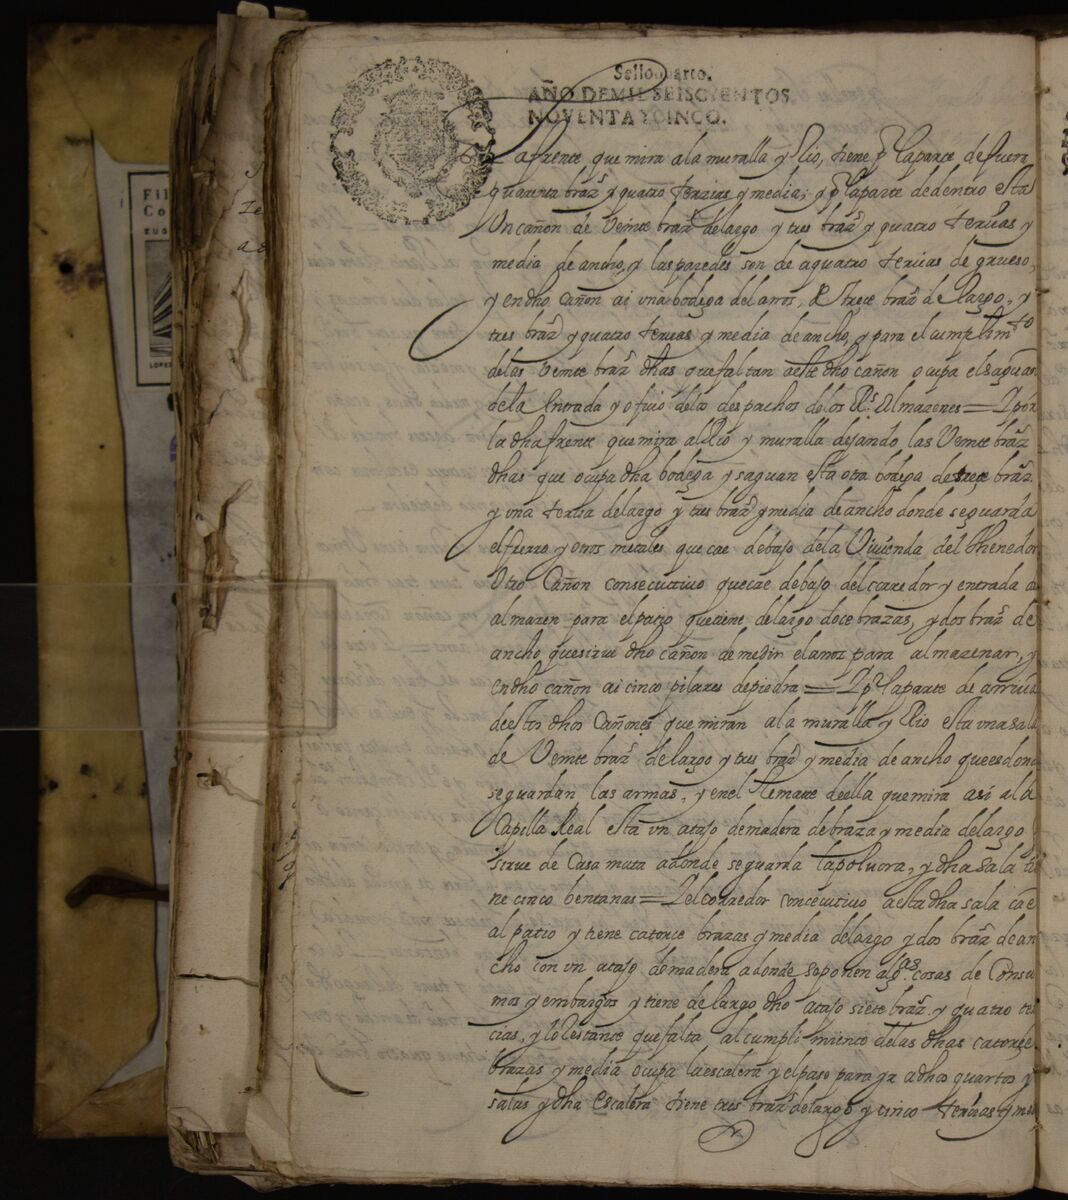 Sello quarto.
AÑO DE MIL SEISCYENTOS
NOVENTA Y CINCO.
La frente que mira ala muralla y Rio, tiene pr laparte de fuera
quarenta braz.s y quatro terzias y media; y pr laparte dedentro esta
Un cañon de Veinte braz.s delargo y tres braz.s y quatro tercias y
media de ancho, y las paredes son de aquatro tercias de grueso,
y en dho Cañon ai vna bodega del arros, de trece braz.s de largo, y
tres braz.s y quatro tercias y media de ancho, y para el cumplim.to
delas Veinte braz.s dhas que faltan aeste dho cañon ocupa el saguan
dela Entrada y oficio delos despachos delos R.s Almazenes = Y por
la dha frente que mira al Rio y muralla dejando las Veinte braz.s
dhas que ocupa dha bodega y saguan esta otra bodega de trece braz.s
y vna tercia delargo y tres braz.s y media de ancho donde se guarda
el fierro y otros metales que cae debajo dela Vivienda del thenedor
Otro Cañon consecutivo quecae debajo del corredor y entrada
almazen para el patio que tiene delargo doce brazas, y dos braz.s de
ancho quesirue dho cañon de medir el arros para almazenar, y
en dho cañon ai cinco pilares depiedra = Y pr laparte de arriua
destos dhos Cañones que miran ala muralla y Rio esta vna sala
de Veinte braz.s delargo y tres braz.s y media de ancho quees donde
se guardan las armas, y en el Remate deella que mira asi ala
Capilla Real esta vn atajo demadera debraza y media delargo
sirue de Casa mata adonde seguarda la poluora, y dha sala tie
ne cinco bentanas = Y el corredor concecutivo aesta dha sala cae
al patio y tiene catorce brazas y media delargo y dos braz.s de an
cho con vn atajo demadera adonde seponen alg.as cosas de Consu
mos y embargos y tiene de largo dho atajo siete braz.s y quatro ter
cias, y lo Restante que falta al cumplimiento delas dhas catorçe
brazas y media ocupa la escalera y el paso para yr a dhos quartos y
salas y dha Escalera tiene tres braz.s delargo y cinco tercias y med
Fil
Co
EUG
LOPE